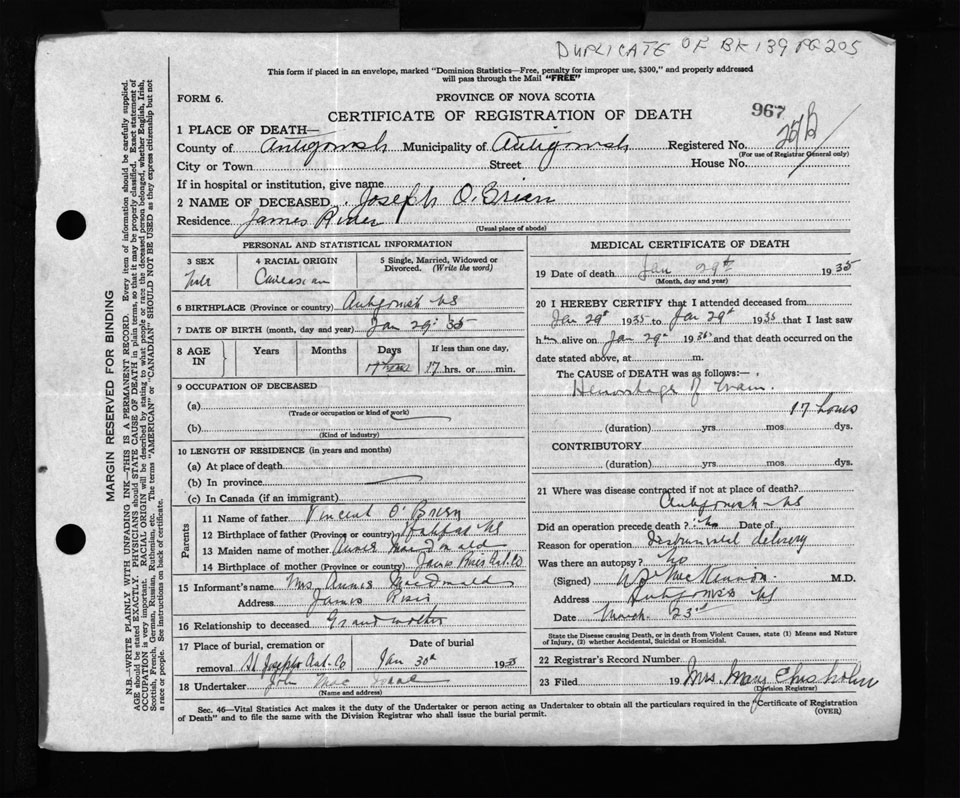 DUPLICATE OF BK 139 PG 205
This form if placed in an envelope, marked "Dominion Statistics—Free, penalty for improper use, $300," and properly addressed
will pass through the Mail "FREE"
FORM 6.
PROVINCE OF NOVA SCOTIA
CERTIFICATE OF REGISTRATION OF DEATH
967
1 PLACE OF DEATH—
County of Antigonish Municipality of Antigonish Registered No.
(For use of Registrar General only)
City or Town Street House No.
If in hospital or institution, give name
2 NAME OF DECEASED Joseph O'Brien
Residence James River
(Usual place of abode)
PERSONAL AND STATISTICAL INFORMATION
3 SEX 4 RACIAL ORIGIN 5 Single, Married, Widowed or Divorced. (Write the word)
Male Caucasian
6 BIRTHPLACE (Province or country) Antigonish NS
7 DATE OF BIRTH (month, day and year) Jan 29 35
8 AGE IN Years Months Days If less than one day,
17 hrs. or min.
9 OCCUPATION OF DECEASED
(a)
(Trade or occupation or kind of work)
(b)
(Kind of industry)
10 LENGTH OF RESIDENCE (in years and months)
(a) At place of death
(b) In province
(c) In Canada (if an immigrant)
Parents
11 Name of father Vincent O'Brien
12 Birthplace of father (Province or country) Halifax NS
13 Maiden name of mother Annie MacDonald
14 Birthplace of mother (Province or country) James River Ant. Co
15 Informant's name Mrs Annie MacDonald
Address James River
16 Relationship to deceased Grandmother
17 Place of burial, cremation or removal St Josephs Ant. Co
Date of burial Jan 30th 1935
18 Undertaker John Mac
(Name and address)
MEDICAL CERTIFICATE OF DEATH
19 Date of death Jan 29th 1935
(Month, day and year)
20 I HEREBY CERTIFY that I attended deceased from
Jan 29th 1935 to Jan 29th 1935 that I last saw
him alive on Jan 29 1935 and that death occurred on the
date stated above, at m.
The CAUSE OF DEATH was as follows:—
Hemorrhage of brain
17 hours
(duration) yrs mos dys.
CONTRIBUTORY
(duration) yrs. mos. dys.
21 Where was disease contracted if not at place of death?
Antigonish NS
Did an operation precede death? no Date of
Reason for operation Instrumental delivery
Was there an autopsy? no
(Signed) MacKinnon M.D.
Address Antigonish NS
Date March 23rd
State the Disease causing Death, or in death from Violent Causes, state (1) Means and Nature
of Injury, (2) whether Accidental, Suicidal or Homicidal.
22 Registrar's Record Number
23 Filed 19 Mrs. Mary Chisholm
(Division Registrar)
Sec. 46—Vital Statistics Act makes it the duty of the Undertaker or person acting as Undertaker to obtain all the particulars required in the Certificate of Registration
of Death" and to file the same with the Division Registrar who shall issue the burial permit.
(OVER)
MARGIN RESERVED FOR BINDING
N.B.—WRITE PLAINLY WITH UNFADING INK—THIS IS A PERMANENT RECORD. Every item of information should be carefully supplied.
AGE should be stated EXACTLY. PHYSICIANS should STATE CAUSE OF DEATH in plain terms, so that it may be properly classified. Exact statement of
OCCUPATION is very important. RACIAL ORIGIN will be described by stating to what people or race the deceased person belonged, whether English, Irish,
Scottish, French, German, Russian, Ruthenian, etc. The terms "AMERICAN" or "CANADIAN" SHOULD NOT BE USED as they express citizenship but not
a race or people. See instructions on back of certificate.